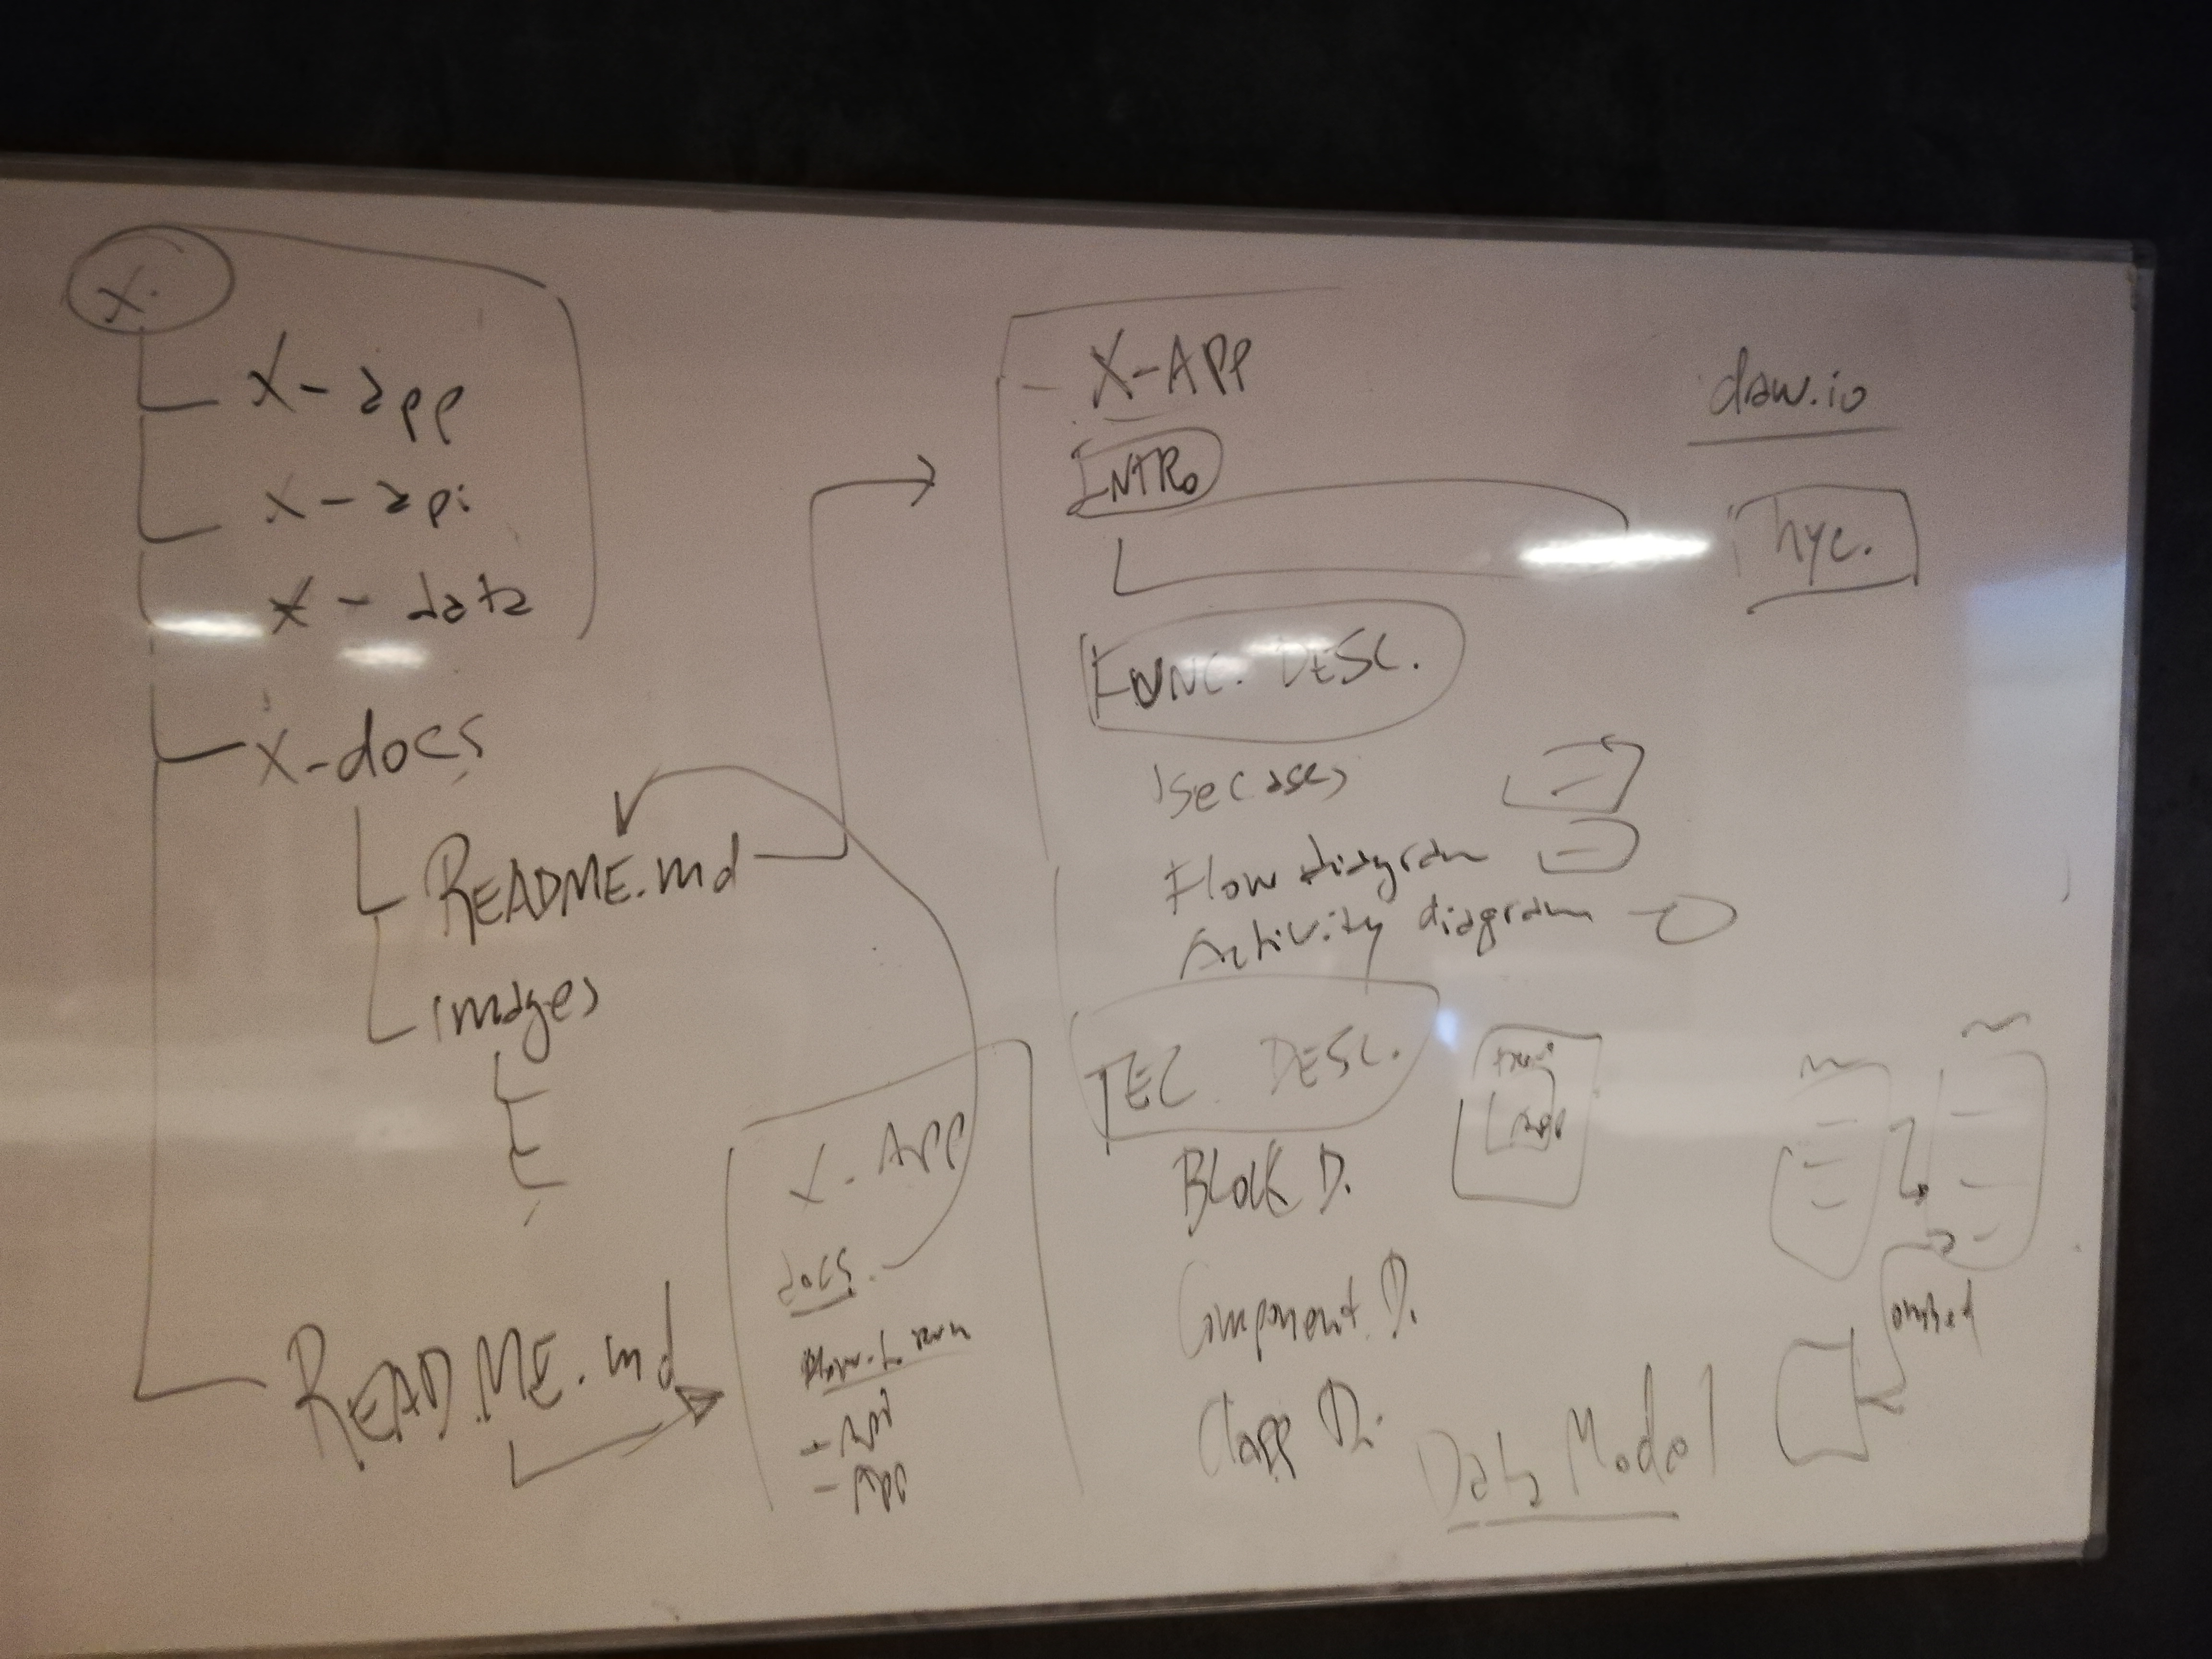 X.
X-app
X-api
X-data
X-docs
README.md
images
README.md
X-APP
docs.
- Api
- APP
X-APP
INTRO
FUNC. DESC.
Usecases
Flow diagram
Activity diagram
TEC DESC.
BLOCK D.
Component D.
Data Model
draw.io
hyc.